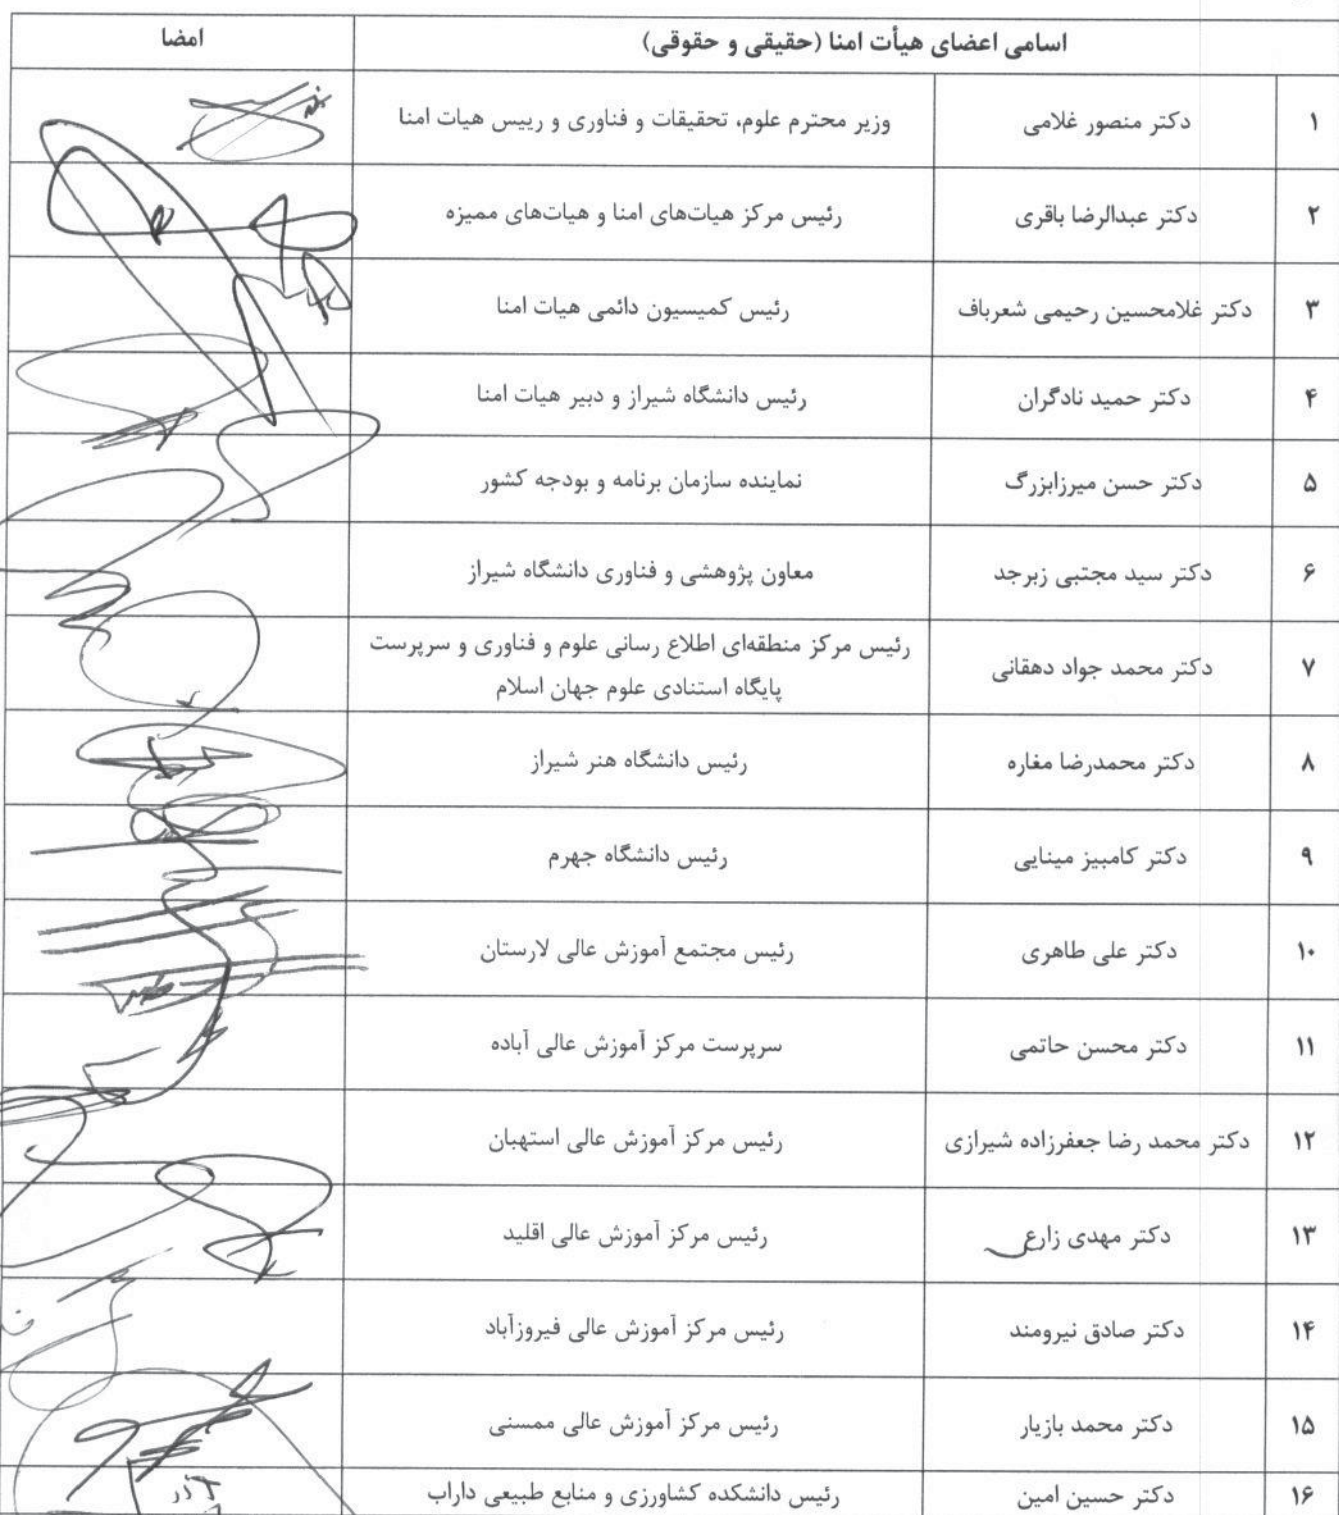 اسامی اعضای هیأت امنا (حقیقی و حقوقی) امضا
۱ دکتر منصور غلامی وزیر محترم علوم، تحقیقات و فناوری و رییس هیات امنا
۲ دکتر عبدالرضا باقری رئیس مرکز هیات‌های امنا و هیات‌های ممیزه
۳ دکتر غلامحسین رحیمی شعرباف رئیس کمیسیون دائمی هیات امنا
۴ دکتر حمید نادگران رئیس دانشگاه شیراز و دبیر هیات امنا
۵ دکتر حسن میرزابزرگ نماینده سازمان برنامه و بودجه کشور
۶ دکتر سید مجتبی زبرجد معاون پژوهشی و فناوری دانشگاه شیراز
۷ دکتر محمد جواد دهقانی رئیس مرکز منطقه‌ای اطلاع رسانی علوم و فناوری و سرپرست
پایگاه استنادی علوم جهان اسلام
۸ دکتر محمدرضا مغاره رئیس دانشگاه هنر شیراز
۹ دکتر کامبیز مینایی رئیس دانشگاه جهرم
۱۰ دکتر علی طاهری رئیس مجتمع آموزش عالی لارستان
۱۱ دکتر محسن حاتمی سرپرست مرکز آموزش عالی آباده
۱۲ دکتر محمد رضا جعفرزاده شیرازی رئیس مرکز آموزش عالی استهبان
۱۳ دکتر مهدی زارع رئیس مرکز آموزش عالی اقلید
۱۴ دکتر صادق نیرومند رئیس مرکز آموزش عالی فیروزآباد
۱۵ دکتر محمد بازیار رئیس مرکز آموزش عالی ممسنی
۱۶ دکتر حسین امین رئیس دانشکده کشاورزی و منابع طبیعی داراب